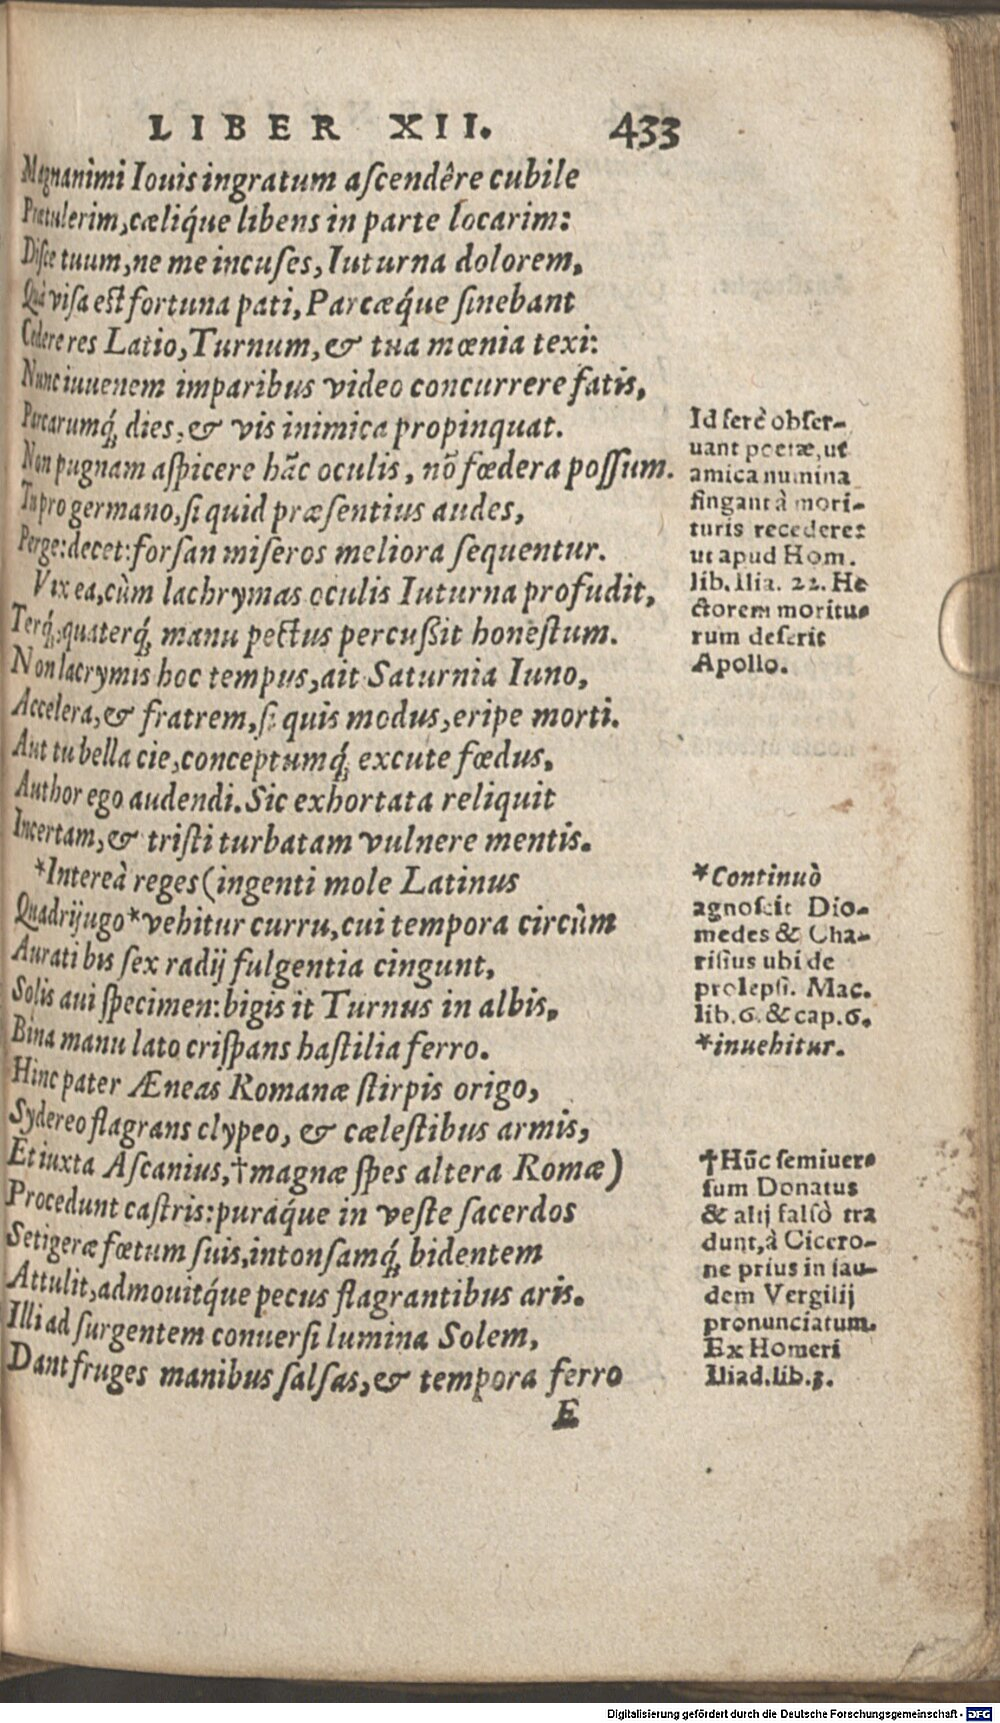 LIBER XII. 433
Magnanimi Iouis ingratum ascendêre cubile
Prætulerim, cæliq́ue libens in parte locarim:
Disce tuum, ne me incuses, Iuturna dolorem.
Quà visa est fortuna pati, Parcæq́ue sinebant
Cedere res Latio, Turnum, & tua mœnia texi:
Nunc iuuenem imparibus video concurrere fatis,
Parcarumq́; dies, & vis inimica propinquat.
Non pugnam aspicere hāc oculis, nō fœdera possum.
Tu pro germano, si quid præsentius audes,
Perge: decet: forsan miseros meliora sequentur.
Vix ea, cùm lachrymas oculis Iuturna profudit,
Terq́;, quaterq́; manu pectus percussit honestum.
Non lacrymis hoc tempus, ait Saturnia Iuno,
Accelera, & fratrem, si quis modus, eripe morti.
Aut tu bella cie, conceptumq́; excute fœdus,
Author ego audendi. Sic exhortata reliquit
Incertam, & tristi turbatam vulnere mentis.
*Intereà reges (ingenti mole Latinus
Quadrijugo *vehitur curru, cui tempora circùm
Aurati bis sex radij fulgentia cingunt,
Solis aui specimen: bigis it Turnus in albis,
Bina manu lato crispans hastilia ferro.
Hinc pater Æneas Romanæ stirpis origo,
Sydereo flagrans clypeo, & cælestibus armis,
Et iuxta Ascanius, †magnæ spes altera Romæ)
Procedunt castris: puraq́ue in veste sacerdos
Setigeræ fœtum suis, intonsamq́; bidentem
Attulit, admouitq́ue pecus flagrantibus aris.
Illi ad surgentem conuersi lumina Solem,
Dant fruges manibus salsas, & tempora ferro
E
Id ferè obser-
uant poetæ, ut
amica numina
fingant à mori-
turis recedere:
ut apud Hom.
lib. Ilia. 22. He
ctorem moritu-
rum deserit
Apollo.
*Continuò
agnoscit Dio-
medes & Cha-
risius ubi de
prolepsi. Mac.
lib. 6. & cap. 6.
*inuehitur.
†Hūc semiuer-
sum Donatus
& alij falsò tra
dunt, à Cicero-
ne prius in lau-
dem Vergilij
pronunciatum.
Ex Homeri
Iliad. lib. 3.
Digitalisierung gefördert durch die Deutsche Forschungsgemeinschaft - DFG